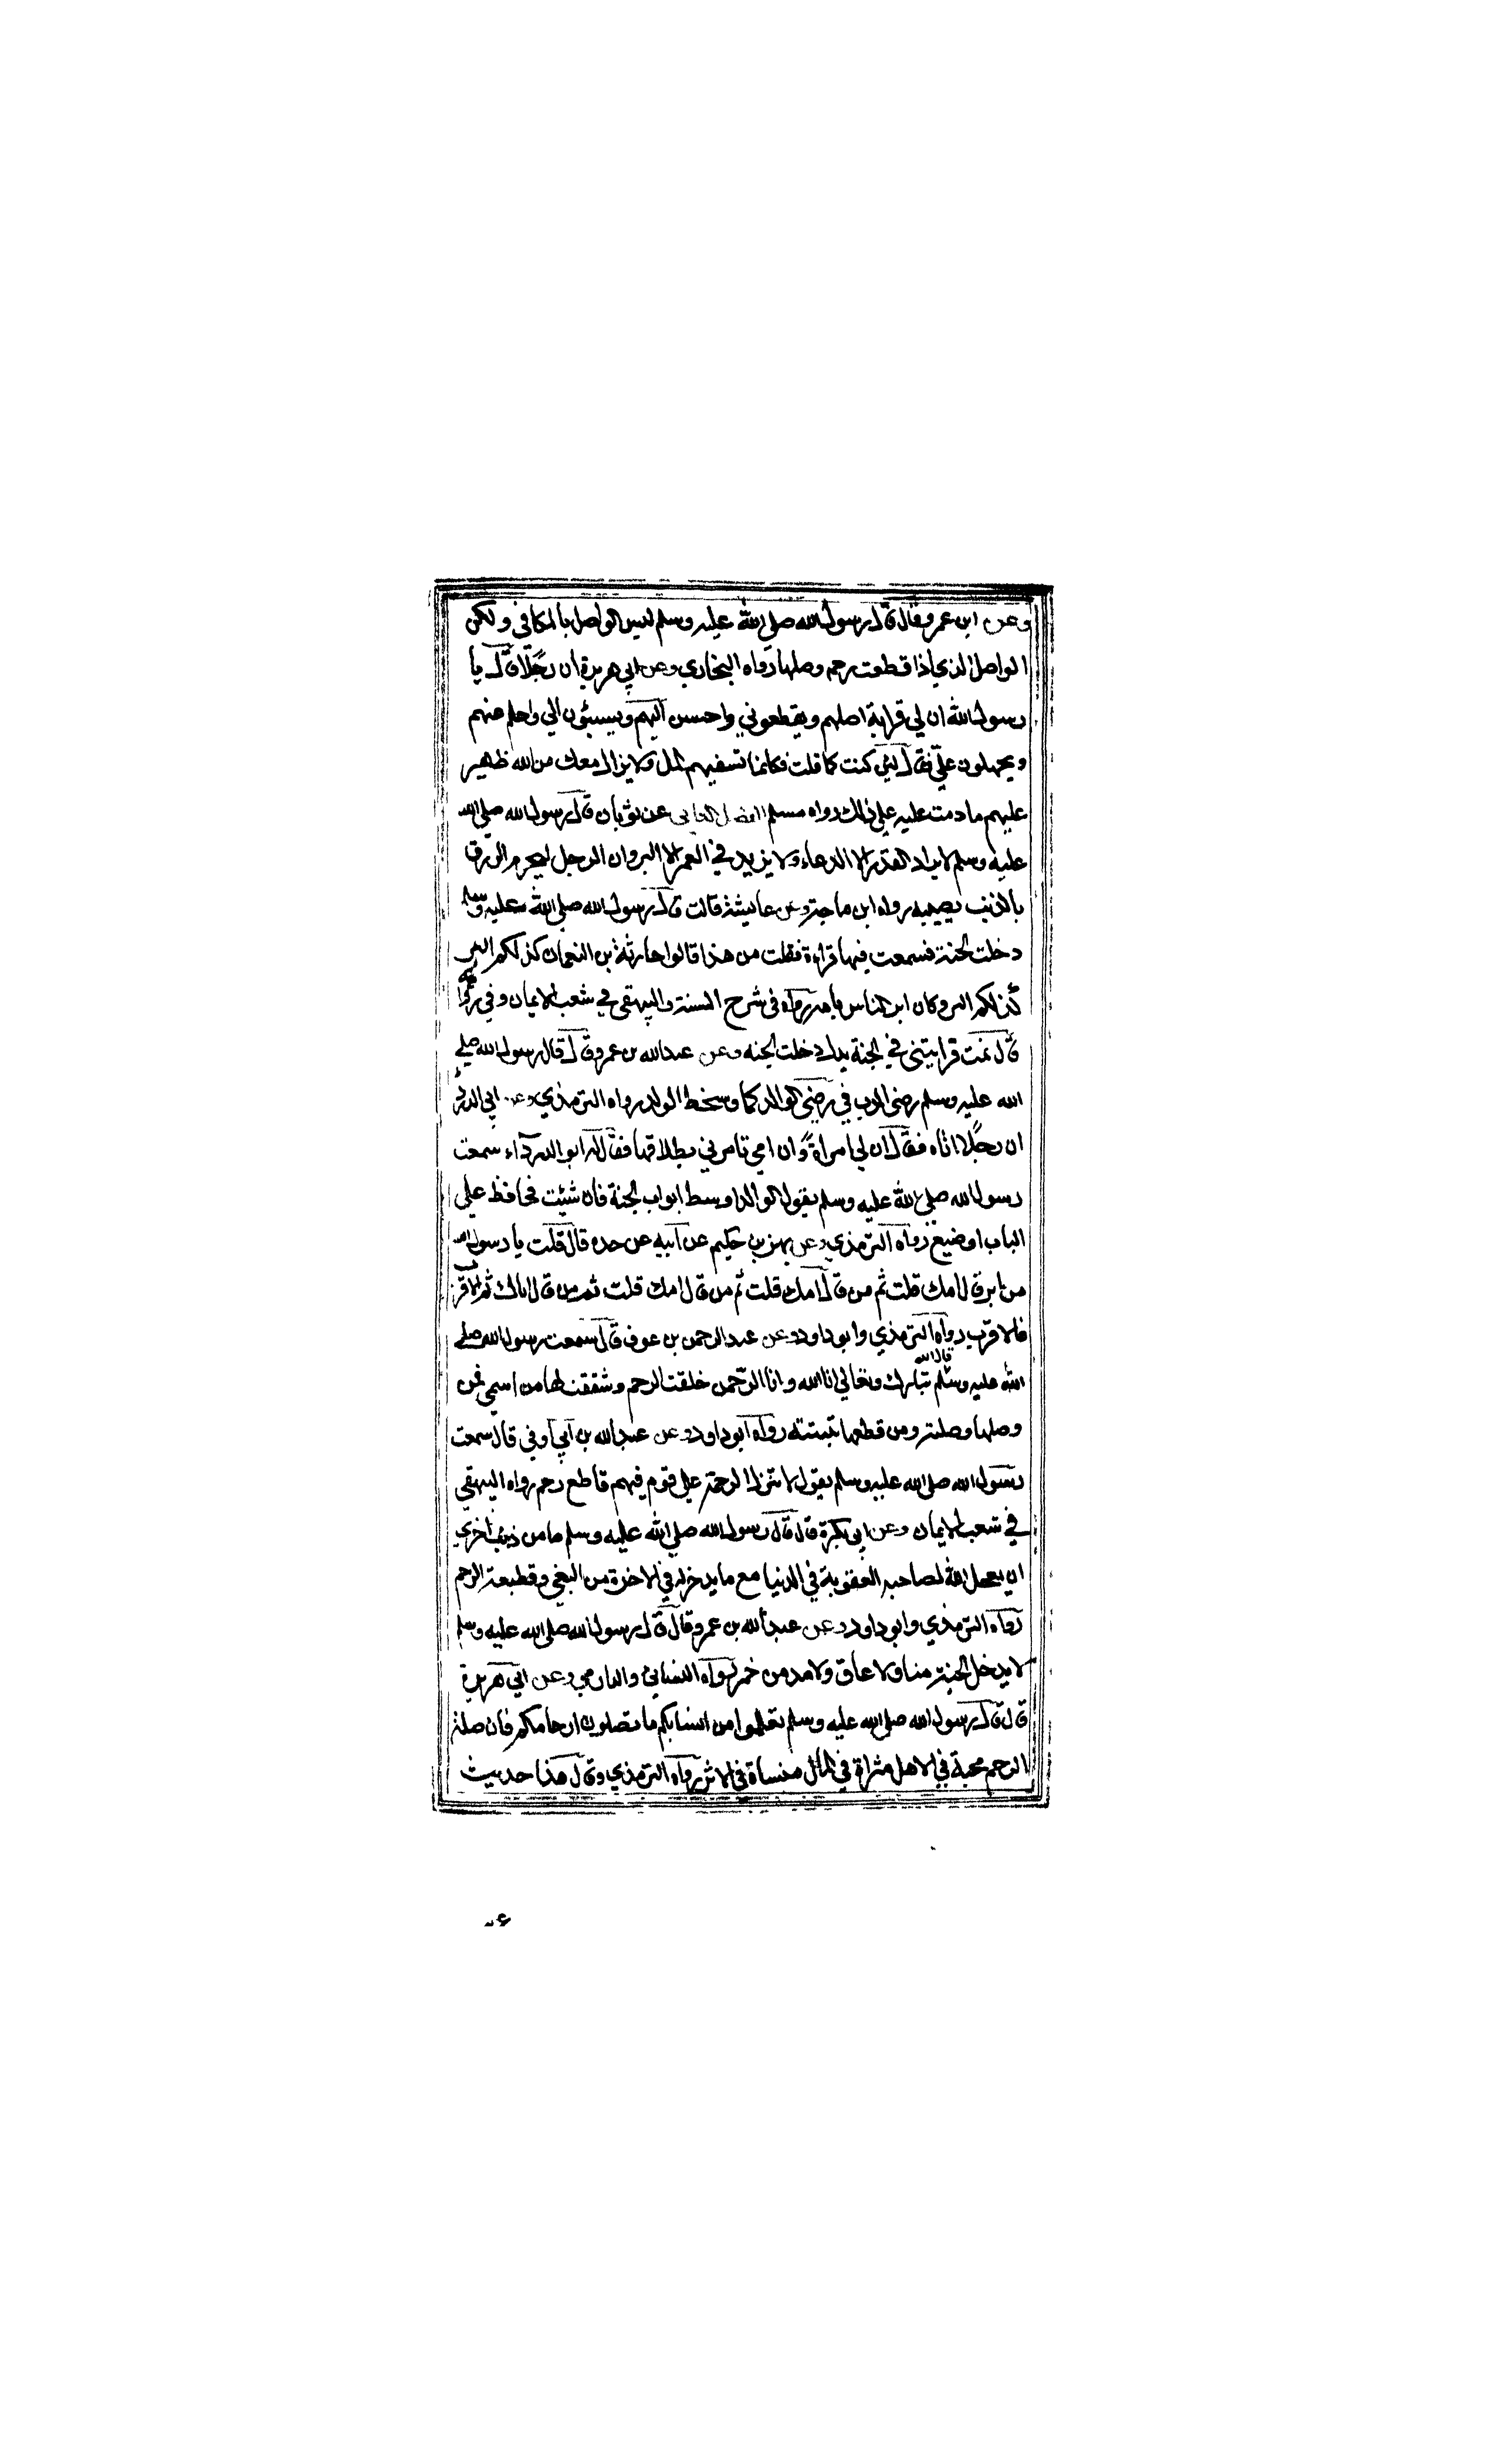 وعن ابن عمرو قال قال رسول الله صلى الله عليه وسلم ليس الواصل بالمكافي ولكن
الواصل الذي اذا قطعت رحمه وصلها رواه البخاري وعن ابي هريرة ان رجلا قال يا
رسول الله ان لي قرابة اصلهم ويقطعوني واحسن اليهم ويسيئون الي واحلم عنهم
ويجهلون علي فقال لئن كنت كما قلت فكانما تسفيهم المل ولا يزال معك من الله ظهير
عليهم ما دمت عليه علي ذلك رواه مسلم الفصل الثاني عن ثوبان قال رسول الله صلى الله
عليه وسلم لا يراد القدر الا الدعاء ولا يزيد في العمر الا البر وان الرجل ليحرم الرزق
بالذنب يصيبه رواه ابن ماجة وعن عايشة قالت قال رسول الله صلى الله عليه وسلم
دخلت الجنة فسمعت فيها قراءة فقلت من هذا قالوا حارثة بن النعمان كذلكم البر
كذلكم البر وكان ابر الناس بامه رواه في شرح السنة والبيهقي في شعب الايمان وفي رواية
قال نمت فرايتني في الجنة بدل دخلت الجنه وعن عبدالله بن عمرو قال قال رسول الله صلي
الله عليه وسلم رضي الرب في رضي الوالد كما وسخط الوالد رواه الترمذي وعن ابي الدر
ان رجلا اتاه فقال ان لي امراة وان امي تامرني بطلاقها فقال له ابو الدرداء سمعت
رسول الله صلى الله عليه وسلم يقول الوالد اوسط ابواب الجنة فان شئت فحافظ علي
الباب او ضيع رواه الترمذي وعن بهز بن حكيم عن ابيه عن جده قال قلت يا رسول الله
من ابر قال امك قلت ثم من قال امك قلت ثم من قال امك قلت ثم من قال اباك ثم الاقرب
فالاقرب رواه الترمذي وابو داود وعن عبد الرحمن بن عوف قال سمعت رسول الله صلي
الله عليه وسلم قال الله تبارك وتعالي انا الله وانا الرحمن خلقت الرحم وشققت لها من اسمي فمن
وصلها وصلته ومن قطعها بتتته رواه ابو داود وعن عبد الله بن ابي اوفي قال سمعت
رسول الله صلى الله عليه وسلم يقول لا تنزل الرحمة علي قوم فيهم قاطع رحم رواه البيهقي
في شعب الايمان وعن ابي بكرة قال قال رسول الله صلى الله عليه وسلم ما من ذنب احري
ان يعجل الله لصاحبه العقوبة في الدنيا مع ما يدخر له في الاخرة من البغي وقطيعة الرحم
رواه الترمذي وابو داود وعن عبد الله بن عمرو قال قال رسول الله صلى الله عليه وسلم
لا يدخل الجنة منا ولا عاق ولا مدمن خمر رواه النسائي والدارمي وعن ابي هريرة
قال قال رسول الله صلى الله عليه وسلم تعلموا من انسابكم ما تصلون ارحامكم فان صلة
الرحم محبة في الاهل مثراة في المال منساة في الاثر رواه الترمذي وقال هذا حديث